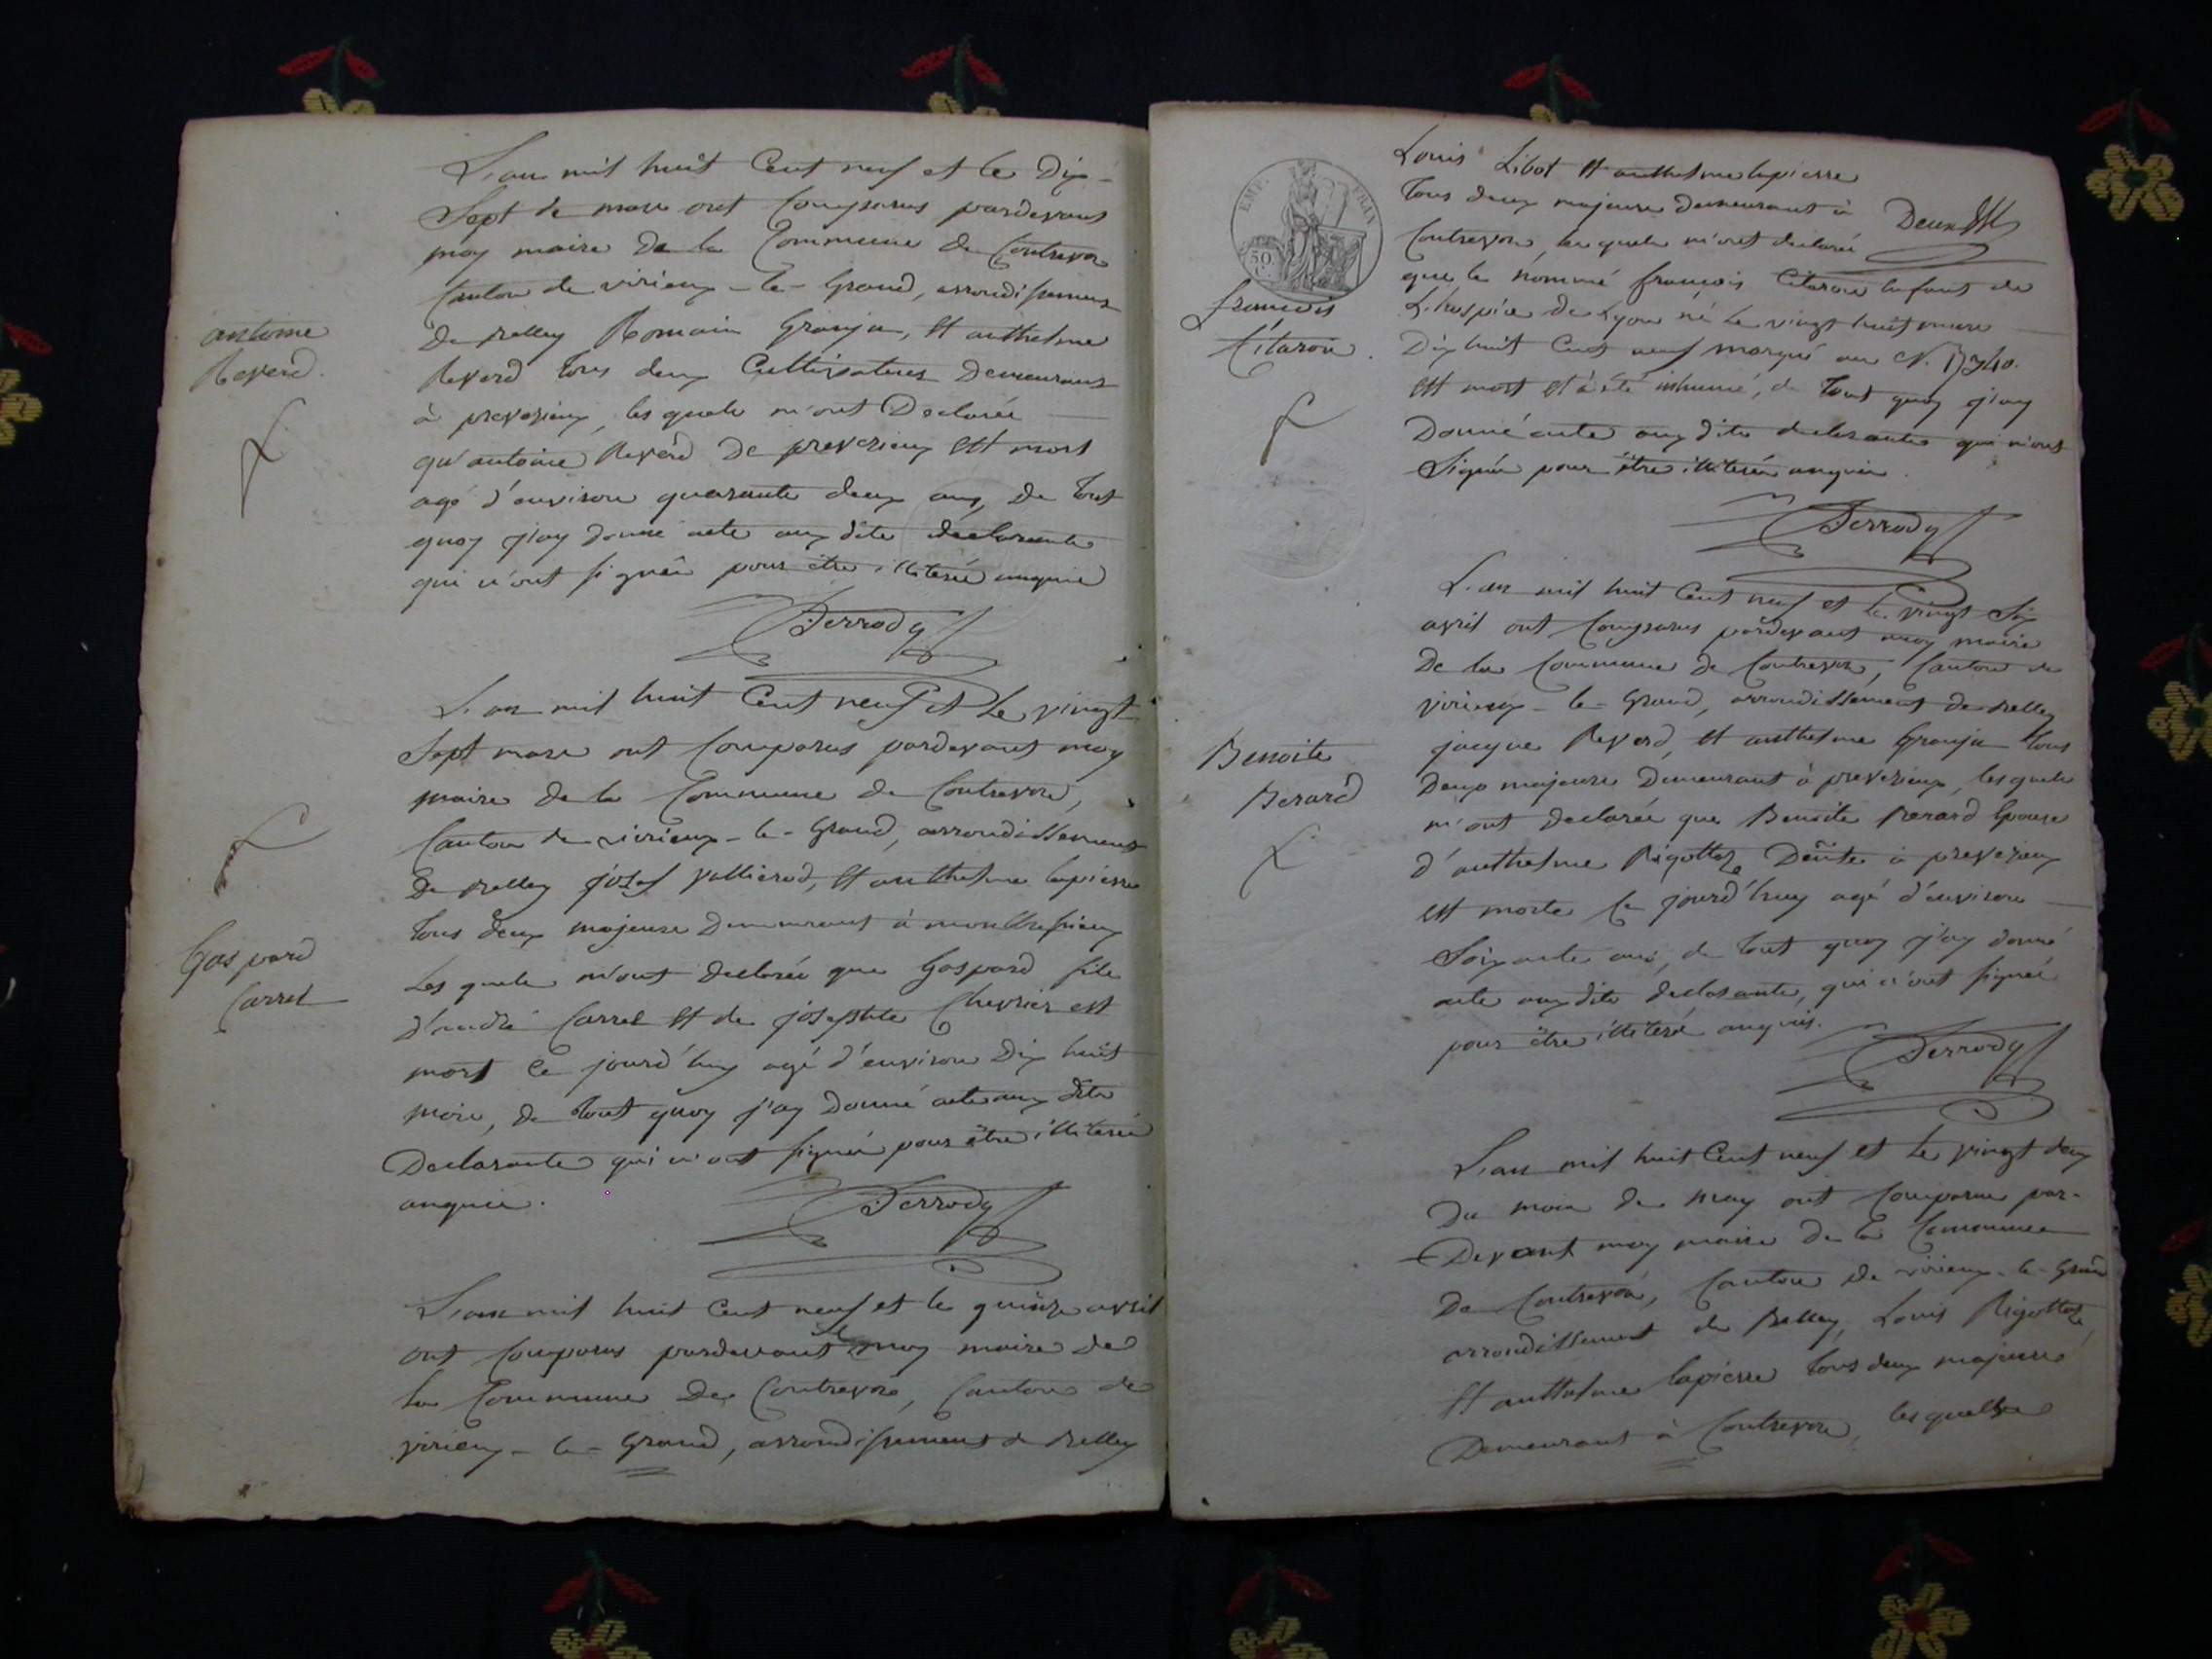 L'an mil huit Cent neuf et le Dix-
Sept de mare ont Comparus pardevant
moy maire de la Commune de Contrevoz
Canton de virieux-le-Grand, arrondissement
De Belley Romain Granjon, et anthelme
Reverd tous deux Cultivateurs Demeurant
à prevezieux, les quels m'ont Declarée
qu'antoine Reverd De prevezieux est mort
agé d'environ quarante deux ans, De tout
quoy j'ay donné acte aux dits declarants
qui n'ont signée pour être illiterée anquis
antoine
Reverd.
Ferrody
L'an mil huit Cent neuf et Le vingt
Sept mare ont Comparus pardevant moy
maire de la Commune de Contrevoz,
Canton de virieux-le-Grand, arrondissement
De Belley josef vallierod, et anthelme lapierre
tous deux majeure Demeurant à
Les quels m'ont declarée que Gaspard fils
d'andré Carrel et de josephte Chevrier est
mort Ce jourd'huy agé d'environ Dix huit
mois, de tout quoy j'ay Donné acte aux dits
Declarants qui n'ont signée pour être illiterée
anquis.
Gaspard
Carrel
Ferrody
L'an mil huit Cent neuf et le quinze avril
ont Comparus pardevant moy maire de
la Commune De Contrevoz, Canton de
virieux-le-Grand, arrondissement de Belley
EMP. FRAN
50
Louis Libot et anthelme lapierre
tous deux majeure demeurant à
Contrevoz, les quels m'ont declarée
que le nommé françois Citaron Enfant de
L'hospice de Lyon né le vingt huit mare
Dix huit Cent neuf marqué au N.
est mort et a été inhumé, de tout quoy j'ay
Donné acte aux dits declarants qui n'ont
Signée pour être illiterée anquis.
Deux
françois
Citaron.
Ferrody
L'an mil huit Cent neuf et le vingt Six
avril ont Comparus pardevant moy maire
De la Commune de Contrevoz, Canton de
virieux-le-Grand, arrondissement de Belley
jacque Reverd, et anthelme Granjon tous
Deux majeure Demeurant à prevezieux, lesquels
m'ont declarée que Benoite Berard Epouse
d'anthelme Rigottaz Deüte à prevezieux
est morte Ce jourd'huy agé d'environ
Soixante ans, de tout quoy j'ay donné
acte aux dits declarants, qui n'ont signée
pour être illiteré anquis.
Benoite
Berard
Ferrody
L'an mil huit Cent neuf et Le vingt deux
Du mois de may ont Comparus par-
Devant moy maire de la Commune
De Contrevoz, Canton de virieux-le-Grand
arrondissement de Belley, Louis Rigottaz,
et anthelme lapierre tous deux majeure
Demeurant à Contrevoz, lesquelles